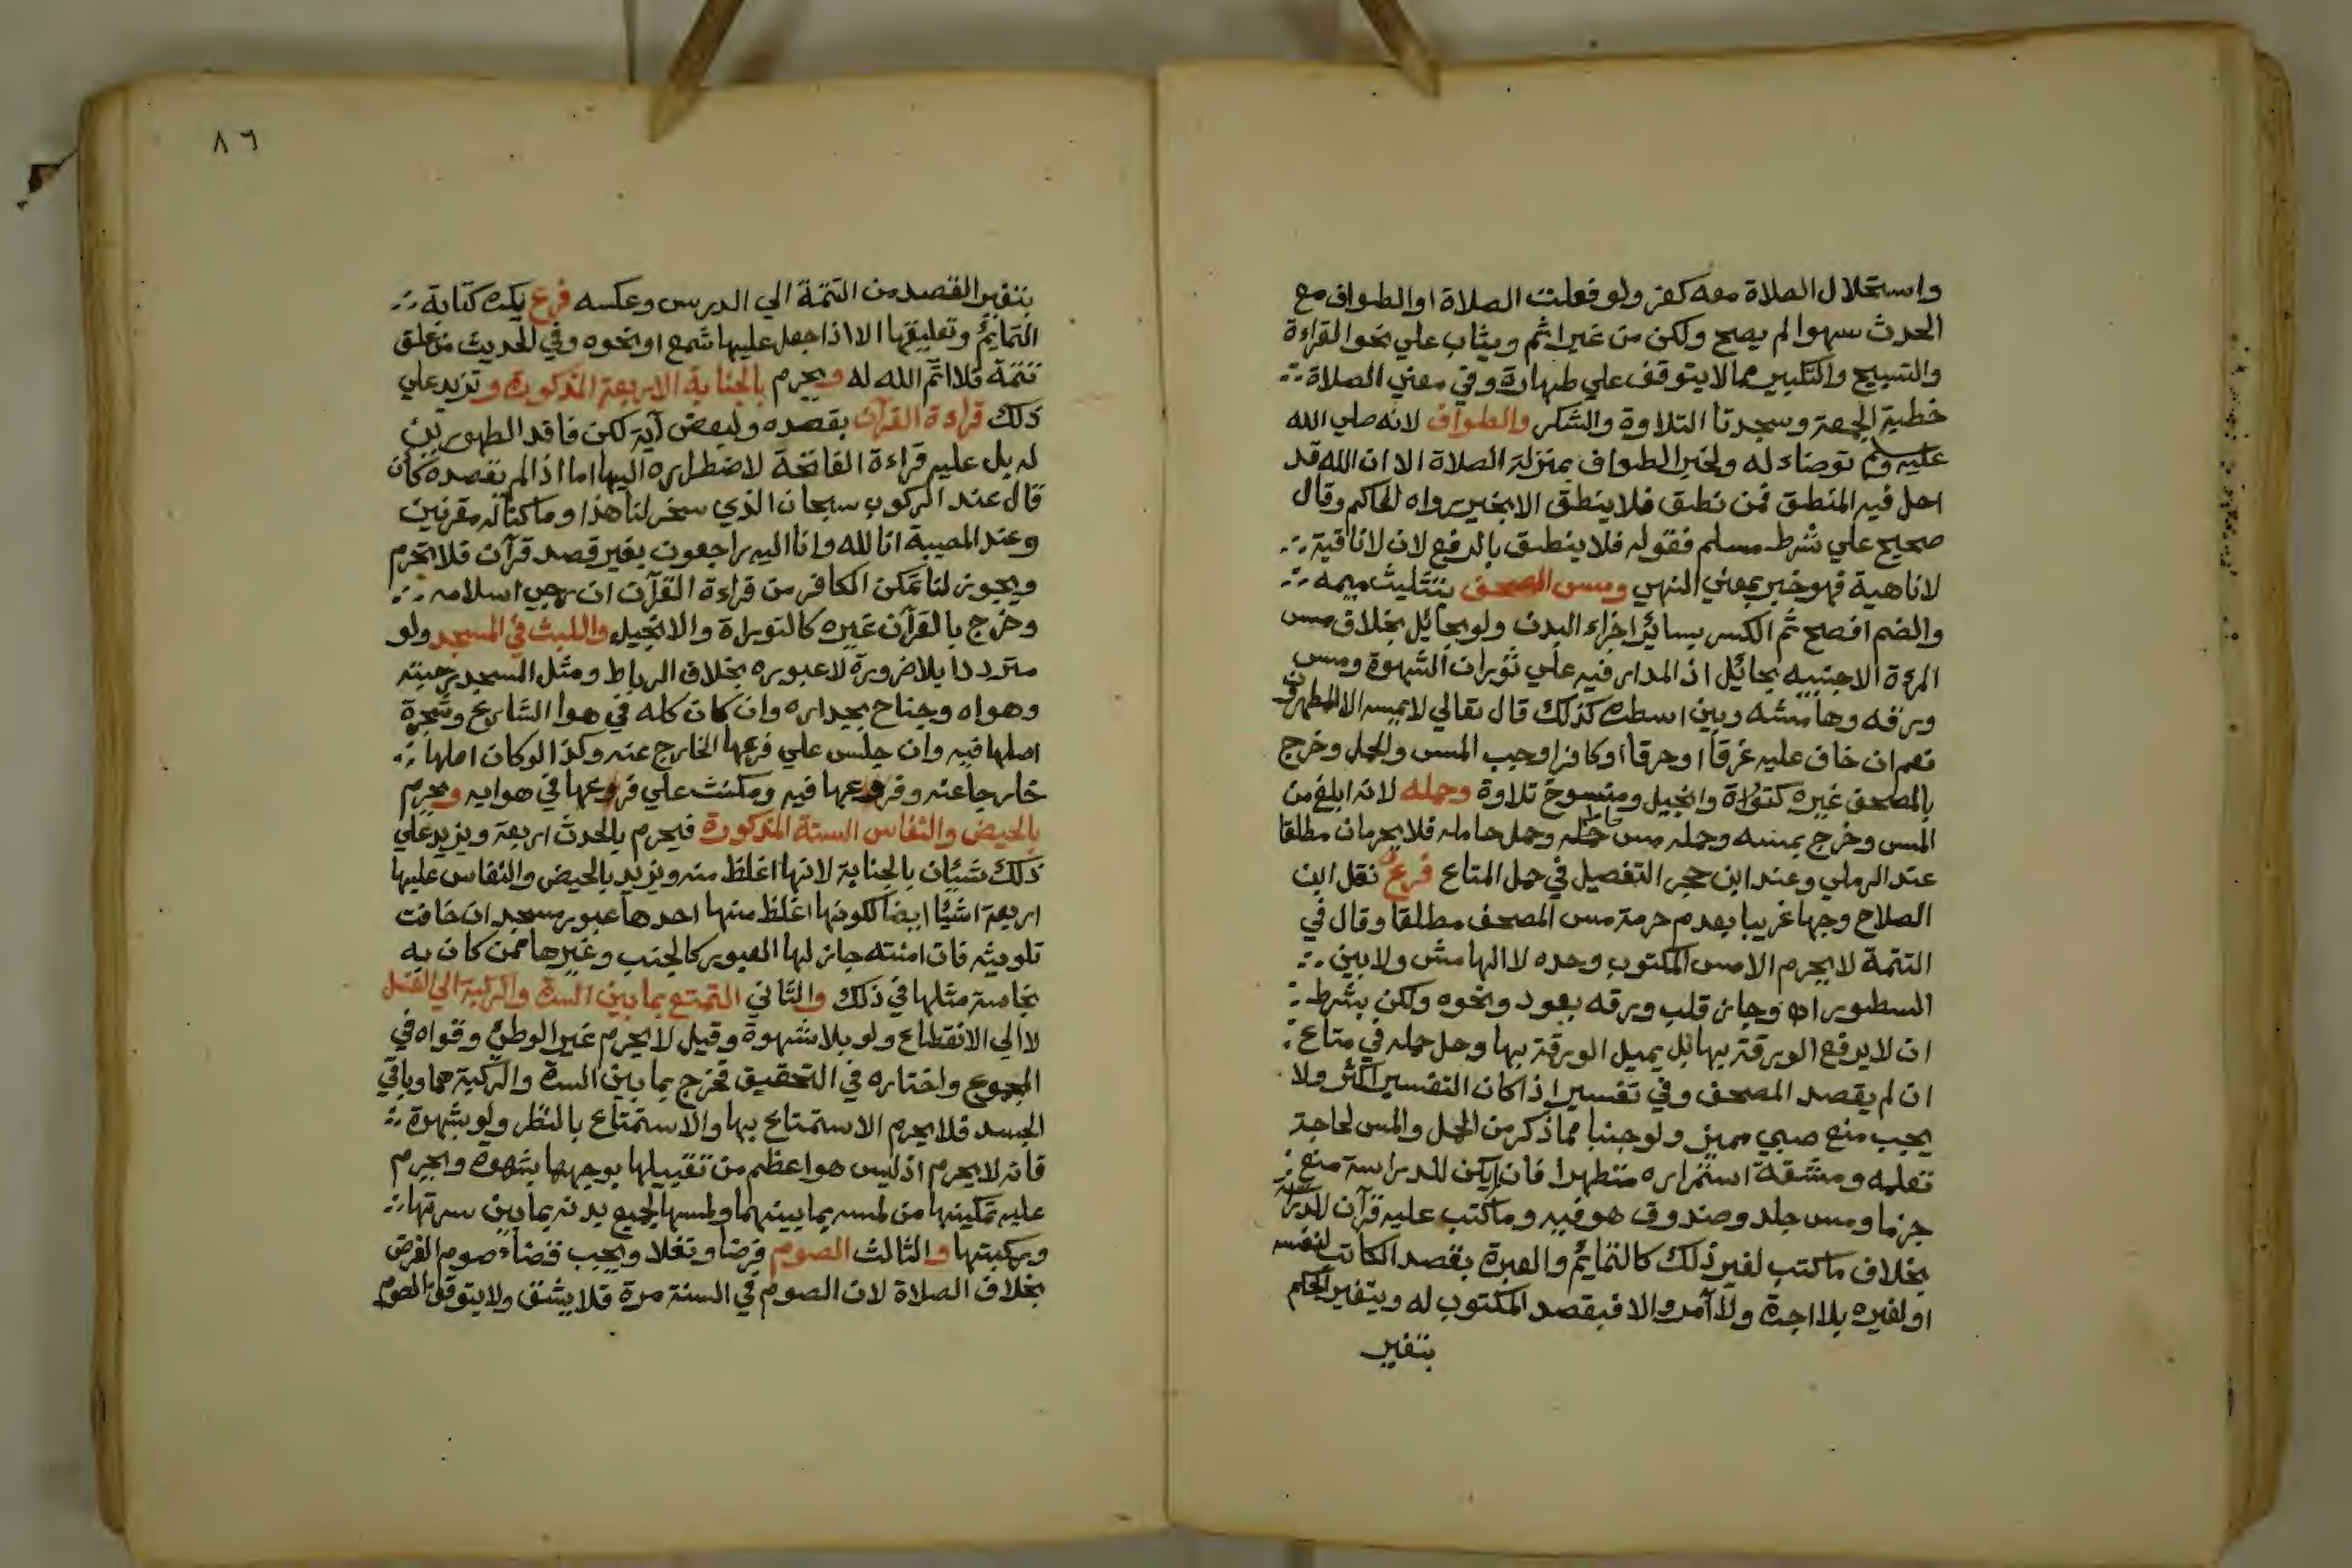 واستحلال الصلاة معه كفر ولو فعلت الصلاة او الطواف مع
الحدث سهوا لم يصح ولكن من غير اثم ويثاب علي نحو القراءة
والتسبيح والتكبير مما لا يتوقف علي طهارة وفي معني الصلاة
خطبة الجمعة وسجدتا التلاوة والشكر والطواف لانه صلي الله
عليه وسلم توضاء له ولخبر الطواف بمنزلة الصلاة الا ان الله قد
احل فيه المنطق فمن نطق فلا ينطق الا بخير رواه الحاكم وقال
صحيح علي شرط مسلم فقوله فلا ينطق بالرفع لان لا نافية
لا ناهية فهو خبر بمعني النهي ومس المصحف بتثليث ميمه
والضم افصح ثم الكسر بسائر اجزاء البدن ولو بحائل بخلاف مس
المرءة الاجنبيه بحائل اذ المدار فيه علي ثوران الشهوة ومس
ورقه وهامشه وبين اسطره كذلك قال تعالي لا يمسه الا المطهرون
نعم ان خاف عليه غرقا او حرقا او كافرا وجب المس والحمل وخرج
بالمصحف غيره كتوراة وانجيل ومنسوخ تلاوة وحمله لانه ابلغ من
المس وخرج بمسه وحمله مس حامله وحمل حامله فلا يحرمان مطلقا
عند الرملي وعند ابن حجر التفصيل في حمل المتاع فرع نقل ابن
الصلاح وجها غريبا بعدم حرمة مس المصحف مطلقا وقال في
التتمة لا يحرم الا مس المكتوب وحده لا الهامش ولا بين
السطور اه وجاز قلب ورقه بعود ونحوه ولكن بشرط
ان لا يرفع الورقة بها بل يميل الورقة بها وحل حمله في متاع
ان لم يقصد المصحف وفي تفسير اذا كان التفسير اكثر ولا
يجب منع صبي مميز ولو جنبا مما ذكر من الحمل والمس لحاجة
تعلمه ومشقة استمراره متطهرا فان لم يكن للدراسة منع
جزما ومس جلد وصندوق هو فيه وما كتب عليه قرآن للدراسة
بخلاف ما كتب لغير ذلك كالتمايم والعبرة بقصد الكاتب لنفسه
او لغيره بلا اجرة ولا آمر والا فبقصد المكتوب له ويتغير الحكم
بتغير
٨٦
بتغير القصد من التتمة الي الدرس وعكسه فرع يكره كتابة
التمايم وتعليقها الا اذا جعل عليها شمع او نحوه وفي الحديث من علق
تتمة فلا اتم الله له ويحرم بالجنابة الاربعة المذكورة وتزيد علي
ذلك قراءة القرآن بقصده ولبعض آية لكن فاقد الطهورين
له بل عليه قراءة الفاتحة لاضطراره اليها اما اذا لم يقصده كان
قال عند الركوب سبحان الذي سخر لنا هذا وما كنا له مقرنين
وعند المصيبة انا لله وانا اليه راجعون بغير قصد قرآن فلا تحرم
ويجوز لنا تمكن الكافر من قراءة القرآن ان رجي اسلامه
وخرج بالقرآن غيره كالتوراة والانجيل واللبث في المسجد ولو
مترددا بلا ضرورة لا عبوره بخلاف الرباط ومثل المسجد رحبته
وهواه وجناح بجداره وان كان كله في هوا الشارع وشجرة
اصلها فيه وان جلس علي فرعها الخارج عنه وكذا لو كان اصلها
خارجا عنه وفرعها فيه ومكث علي فرعها في هوايه ويحرم
بالحيض والنفاس الستة المذكورة فيحرم بالحدث اربعة ويزيد علي
ذلك شيئان بالجنابة لانها اغلظ منه ويزيد بالحيض والنفاس عليها
اربعة اشياء ايضا لكونها اغلظ منها احدها عبور مسجد ان خافت
تلويثه فان امنته جاز لها العبور كالجنب وغيرها ممن كان به
نجاسة مثلها في ذلك والثاني التمتع بما بين السرة والركبة الي الغسل
لا الي الانقطاع ولو بلا شهوة وقيل لا يحرم غير الوطئ وقواه في
المجموع واختاره في التحقيق فخرج بما بين السرة والركبة هما وباقي
الجسد فلا يحرم الاستمتاع بها والاستمتاع بالنظر ولو بشهوة
فانه لا يحرم اذ ليس هو اعظم من تقبيلها بوجهها بشهوة ويحرم
عليه تمكينها من لمسه بما بينهما ولمسها لجميع بدنه بما بين سرتها
وركبتها والثالث الصوم فرضا ونفلا ويجب قضاء صوم الفرض
بخلاف الصلاة لان الصوم في السنة مرة فلا يشق ولا يتوقف الصوم